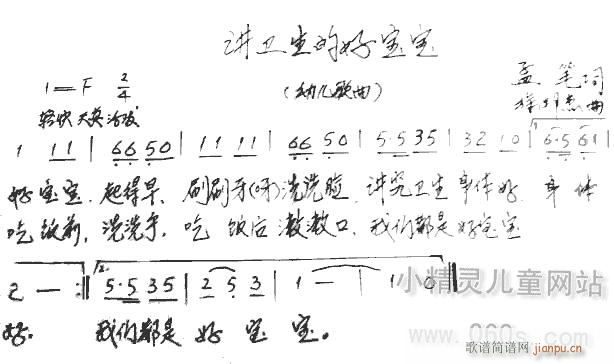 讲卫生的好宝宝
1=F 2/4
(幼儿歌曲)
孟 笔 词
曲
轻快 天真 活泼
1 11 | 66 50 | 11 11 | 66 50 | 5·5 35 | 32 10 | 1. 6·5 61 |
好宝宝 起得早, 刷刷牙(呀)洗洗脸 讲究卫生身体好 身体
吃饭前, 洗洗手, 吃饭后漱漱口, 我们都是好宝宝
2 — :‖ 2. 5·5 35 | 2 5 3 | 1 — | 1 0 ‖
好. 我们都是 好 宝 宝。
小精灵儿童网站
www.060s.com
歌谱简谱网
jianpu.cn